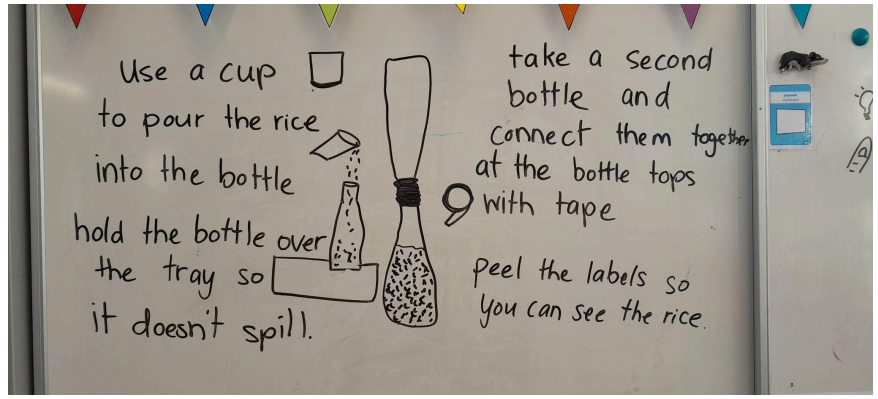 Use a cup
to pour the rice
into the bottle
hold the bottle over
the tray so
it doesn't spill.
take a second
bottle and
connect them together
at the bottle tops
with tape
peel the labels so
you can see the rice.